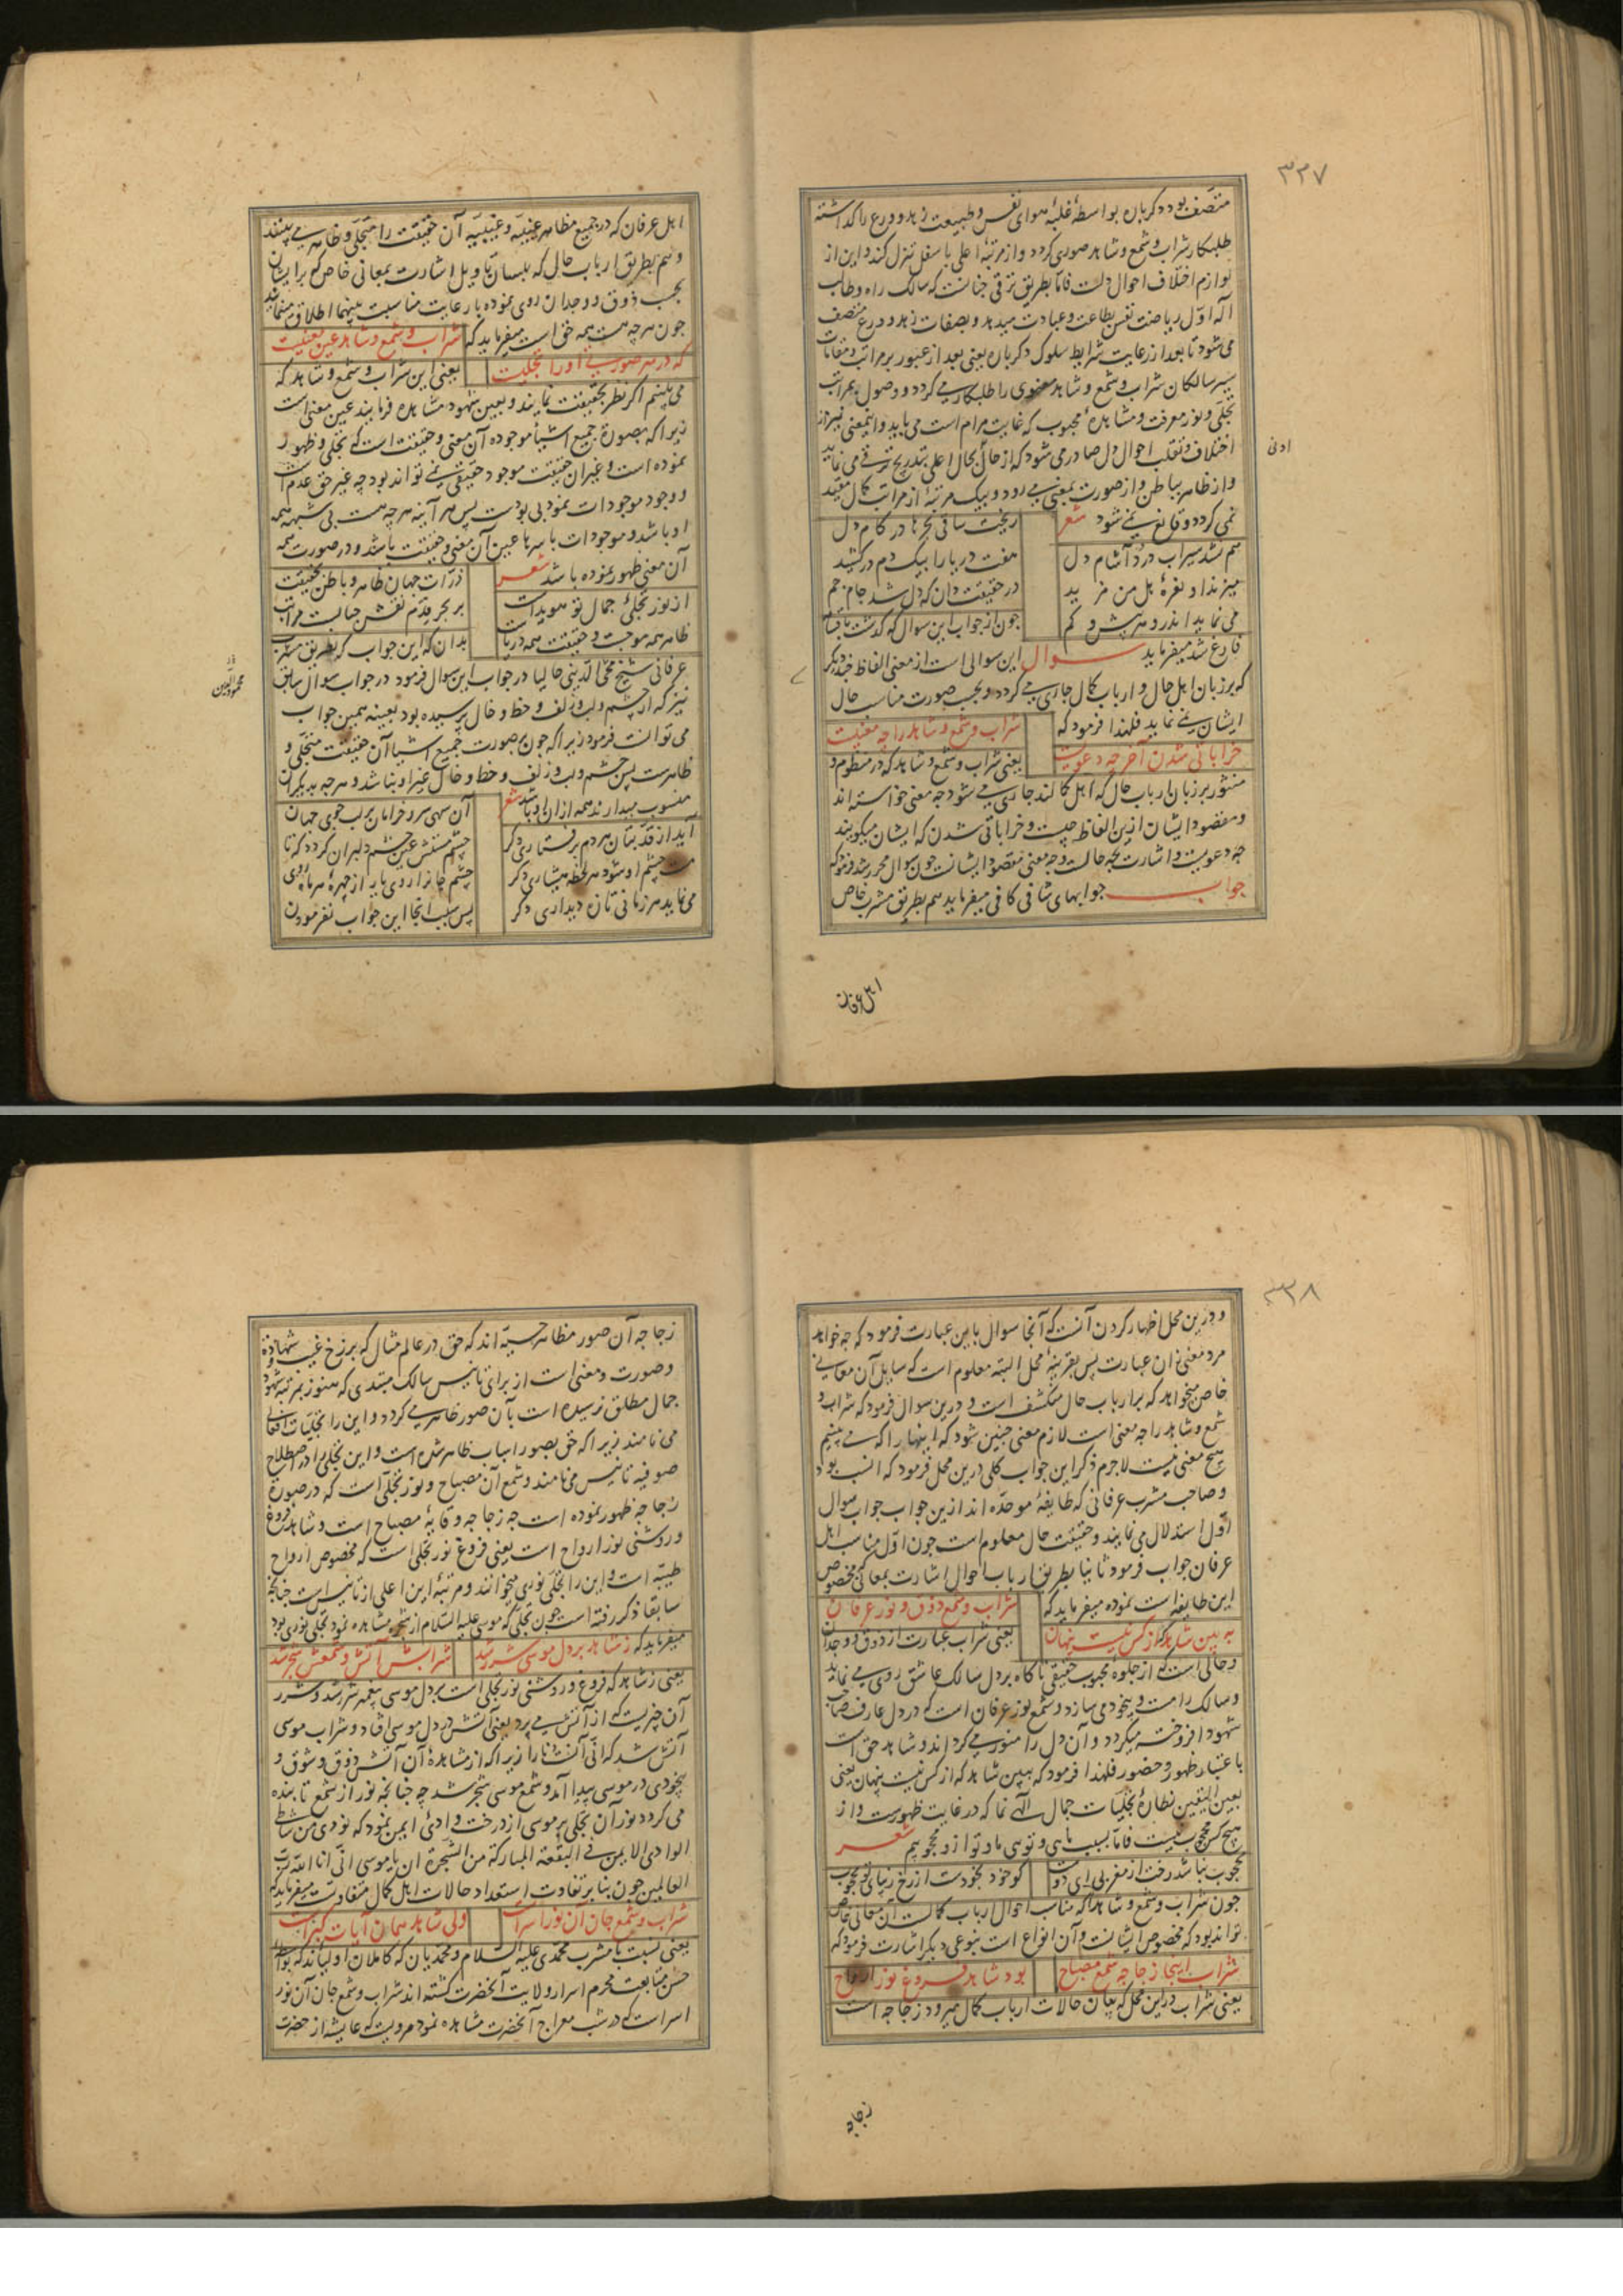 ۳۳۷
متصف بود دکر باره بواسطهٔ غلبهٔ هوای نفس و طبیعت زهد و ورع را کذاشته
طلبکار شراب و شمع و شاهد صوری کردد و از مرتبهٔ اعلی باسفل تنزل کند و این از
لوازم اختلاف احوال دلست فاما بطریق ترقی چنانست که سالک راه و طالب
اله اول ریاضت نفس بطاعت و عبادت میدهد و بصفات زهد و ورع متصف
می شود تا بعد از رعایت شرایط سلوک دکر باره یعنی بعد از عبور بر مراتب و مقامات
سیر سالکان شراب و شمع و شاهد معنوی را طلبکار می کردد و وصول بمراتب
تجلی و نور معرفت و مشاهدهٔ محبوب که غایت مرام است می یابد و اینمعنی نیز از
اختلاف و تقلب احوال دل صادر می شود که از حال بحال اعلی بتدریج ترقی می نماید
ادنی
و از ظاهر بباطن و از صورت بمعنی می رود و بیک مرتبهٔ از مراتب کمال مقید
نمی کردد و قانع نمی شود شعر ریخت ساقی بحرها در کام دل
هم نشد سیراب درد آشام دل هفت دریا را بیک دم درکشید
میزند او نعرهٔ هل من مزید در حقیقت دان که دل شد جام جم
می نماید اندرو هر بیش و کم چون از جواب این سوال که کذشت
فارغ شد میفرماید سوال این سوالی است از معنی الفاظ چند دیکر
که بر زبان اهل حال و ارباب کمال جاری می کردد و بحسب صورت مناسب حال
ایشان نمی نماید فلهذا فرمود که شراب و شمع و شاهد را چه معنیست
خراباتی شدن آخر چه دعویست یعنی شراب و شمع و شاهد که در منظوم و
منثور بر زبان ارباب حال که اهل کمالند جاری می شود چه معنی خواسته اند
و مقصود ایشان ازین الفاظ چیست و خراباتی شدن که ایشان میکویند
چه دعویست و اشارت بچه حالست و چه معنی مقصود ایشانست چون سوال محرر شد فرمود که
جواب جوابهای شافی کافی میفرماید هم بطریق مشرب خاص
اهل عرفان
اهل عرفان که در جمیع مظاهر عینیه و غیبیه آن حقیقت را متجلی و ظاهر می بینند
و هم بطریق ارباب حال که بلسان تاویل اشارت بمعانی خاص که بر ایشان
بحسب ذوق و وجدان روی نموده با رعایت مناسبت بینهما اطلاق مینمایند
چون هر چه هست همه حق است میفرماید که شراب و شمع و شاهد عین معنیست
که در هر صورتی او را تجلیست یعنی این شراب و شمع و شاهد که
می بینم اکر نظر بحقیقت نمایند و بعین شهود مشاهده فرمایند عین معنی است
زیرا که بصورت جمیع اشیا موجوده آن معنی و حقیقت است که تجلی و ظهور
نموده است و غیر آن حقیقت موجود حقیقی نمی تواند بود چه غیر حق عدم است
و وجود موجودات نمود بی بودست پس هر آینه هر چه هست بی شبهه همه
او باشد و موجودات باسرها عین آن معنی و حقیقت باشد و در صورت همه
آن معنی ظهور نموده باشد شعر ذرات جهان ظاهر و باطن بحقیقت
از نور تجلی جمال تو هویداست بر بحر قدم نقش حبابست مراتب
ظاهر همه موجست و حقیقت همه دریاست بدان که این جواب که بطریق مشرب
عرفانی شیخ محمود الدین حالیا در جواب این سوال فرمود در جواب سوال سابق
نیز که از چشم و لب و زلف و خط و خال پرسیده بود بعینه همین جواب
می توانست فرمود زیرا که چون بصورت جمیع اشیا آن حقیقت متجلی و
ظاهرست پس چشم و لب و زلف و خط و خال غیر او نباشد و هر چه بدیکران
منسوب میدارند همه از ان او باشد شعر آن سهی سرو خرامان بر لب جوی جهان
آید از قد بتان هر دم برفتاری دکر چشم مستش عین چشم دلبران کردد که تا
مست چشم او شود هر لحظه هشیاری دکر چشم جانرا روی یار از چهرهٔ هر ماه روی
می نماید هر زمانی تازه دیداری دکر پس سبب انجا این جواب نفرمودن
۳۳۸
و درین محل اظهار کردن آنست که آنجا سوال باین عبارت فرمود که چه خواهد
مرد معنی زان عبارت پس بقرینهٔ محل البته معلوم است که سایل آن معانی
خاص میخواهد که بر ارباب حال منکشف است و درین سوال فرمود که شراب و
شمع و شاهد را چه معنی است لازم معنی چنین شود که اینها را که می بینیم
هیچ معنی نیست لاجرم ذکر این جواب کلی درین محل فرمود که انسب بود
و صاحب مشرب عرفانی که طایفهٔ موحده اند ازین جواب جواب سوال
اول استدلال می نمایند و حقیقت حال معلوم است چون اول مناسب اهل
عرفان جواب فرمود ثانیا بطریق ارباب احوال اشارت بمعانی که مخصوص
این طایفه است نموده میفرماید که شراب و شمع ذوق و نور عرفان
به بین شاهد که از کس نیست پنهان یعنی شراب عبارت از ذوق و وجدان
و حالی است که از جلوهٔ محبوب حقیقی ناکاه بر دل سالک عاشق روی می نماید
و سالک را مست و بیخود می سازد و شمع نور عرفان است که در دل عارف صاحب
شهود افروخته میکردد و آن دل را منور می کرداند و شاهد حق است
باعتبار ظهور و حضور فلهذا فرمود که ببین شاهد که از کس نیست پنهان یعنی
بعین الیقین نظارهٔ تجلیات جمال الهی نما که در غایت ظهورست و از
هیچ کس محجوب نیست فاما بسبب مایی و تویی ما و تو ازو محجوبیم شعر
محجوب نباشد رخت از مغربی ای دوست کو خود بخودست از رخ زیبای تو محجوب
چون شراب و شمع و شاهد که مناسب احوال ارباب کمالست آن معانی خاص
تواند بود که مخصوص ایشانست و آن انواع است بنوعی دیکر اشارت فرمود که
شراب اینجا زجاجه شمع مصباح بود شاهد فروغ نور ارواح
یعنی شراب درین محل که بیان حالات ارباب کمال میرود زجاجه است
زجاجه
زجاجه آن صور مظاهر حسیه اند که حق در عالم مثال که برزخ غیب و شهادة
و صورت و معنی است از برای تانیس سالک مبتدی که هنوز بمرتبهٔ شهود
جمال مطلق نرسیده است بآن صور ظاهر می کردد و این را تجلیات افعالی
می نامند زیرا که حق بصور اسباب ظاهر شده است و این تجلی را در اصطلاح
صوفیه تانیس می نامند و شمع آن مصباح و نور تجلی است که در صورة
زجاجه ظهور نموده است چه زجاجه وقایهٔ مصباح است و شاهد فروغ
و روشنی نور ارواح است یعنی فروغ نور تجلی است که مخصوص ارواح
طیبه است و این را تجلی نوری میخوانند و مرتبهٔ این اعلی از تانیس است چنانچه
سابقا ذکر رفته است چون تجلی که موسی علیه السلام از شجره مشاهده نمود تجلی نوری بود
میفرماید که ز شاهد بر دل موسی شرر شد شرابش آتش و شمعش شجر شد
یعنی ز شاهد که فروغ و روشنی نور تجلی است بر دل موسی پیغمبر شرر شد و شرر
آن چیزیست که از آتش می پرد یعنی آتش در دل موسی افتاد و شراب موسی
آتش شد که انی آنست نارا زیرا که از مشاهدهٔ آن آتش ذوق و شوق و
بیخودی در موسی پیدا آمد و شمع موسی شجر شد چه چنانچه نور از شمع تابنده
می کردد نور آن تجلی بر موسی از درخت وادیٔ ایمن نمود که نودی من شاطی
الوادی الایمن فی البقعة المبارکة من الشجرة ان یا موسی انی انا الله رب
العالمین چون بنا بر تفاوت استعداد حالات اهل کمال متفاوتست میفرماید که
شراب و شمع جان آن نور اسراست ولی شاهد همان آیات کبراست
یعنی نسبت با مشرب محمدی علیه السلام و محمدیان که کاملان اولیااند که بواسطه
حسن متابعت محرم اسرار ولایت آنحضرت کشته اند شراب و شمع جان آن نور
اسراست که در شب معراج آنحضرت مشاهده نمود مرویست که عایشه از حضرت